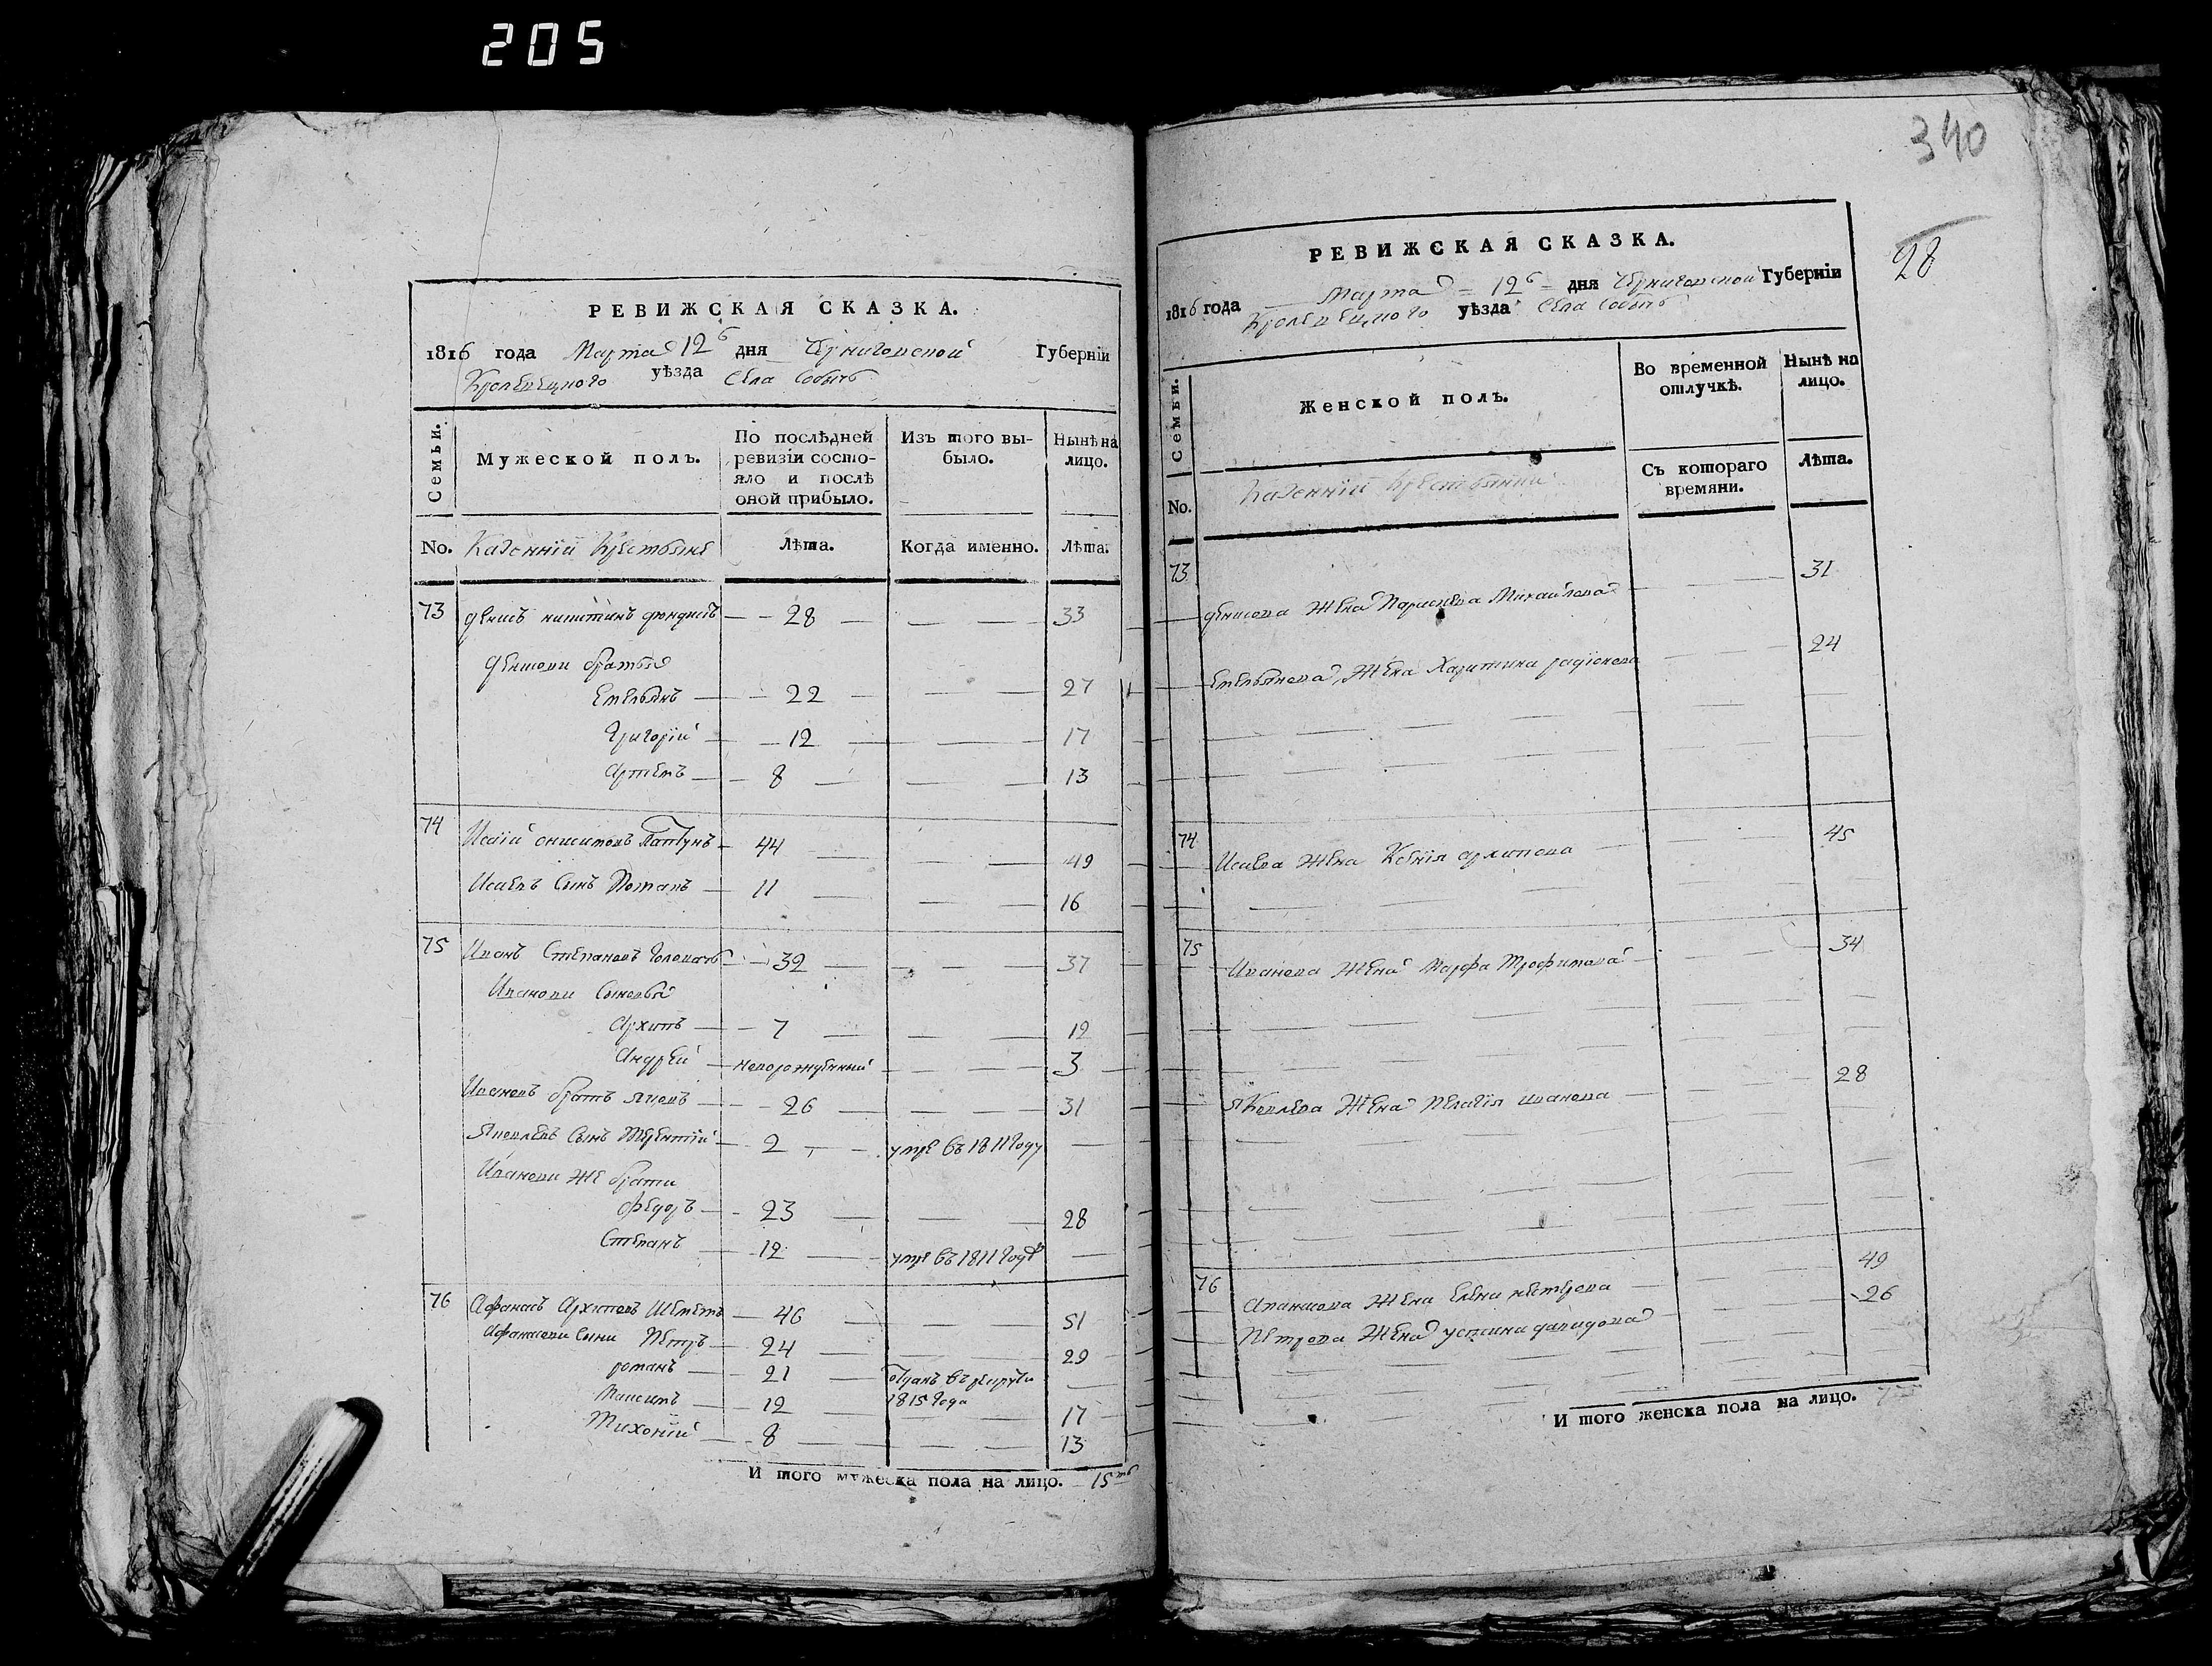 205
РЕВИЖСКАЯ СКАЗКА.
1816 года Марта 12 дня Черниговской Губерніи
Кролевецкого уѣзда Села Собычъ
Семьи.
Мужеской полъ.
По послѣдней ревизіи состояло и послѣ оной прибыло.
Изъ того выбыло.
Нынѣ на лицо.
No. Казенніи Крестьяне Лѣта. Когда именно. Лѣта.
73 Денисъ никитинъ — 28 — 33
Денисови братья
Емельянъ — 22 — 27
Григорій — 12 — 17
Артемъ — 8 — 13
74 Исаій онисимовъ Лаптунъ — 44 — 49
Исаевъ Сынъ Потапъ — 11 — 16
75 Иванъ Степановъ Головачъ — 32 — 37
Иванови Сыновья
Архипъ — 7 — 12
Андрей — новорожденный — 3
Ивановъ братъ яковъ — 26 — 31
Яковлевъ Сынъ Терентій — 2 — умре въ 1811 Году —
Иванови же брати
Федоръ — 23 — 28
Степанъ — 12 — умре въ 1811 Годѣ —
76 Афанасъ Архиповъ Шеметъ — 46 — 51
Афанасови Сыни Петръ — 24 — 29
романъ — 21 — отданъ въ рекруты —
Максимъ — 12 — 1815 Года — 17
Тихоній — 8 — 13
И того мужеска пола на лицо. 15ть
340
28
РЕВИЖСКАЯ СКАЗКА.
1816 года Марта 12 дня Черниговской Губерніи
Кролевецкого уѣзда Села Собычъ
Семьи.
Женской полъ.
Во временной отлучкѣ.
Нынѣ на лицо.
No. Казенніи Крестьянки Съ котораго времяни. Лѣта.
73 Денисова Жена Парасковя Михайлова — 31
Емельянова Жена Харитина радіонова — 24
74 Исаева Жена Ксенія архипова — 45
75 Иванова Жена Марфа Трофимова — 34
Яковлева Жена Пелагія иванова — 28
76 Апанасова Жена Елена петрова — 49
Петрова Жена устина давидова — 26
И того женска пола на лицо.